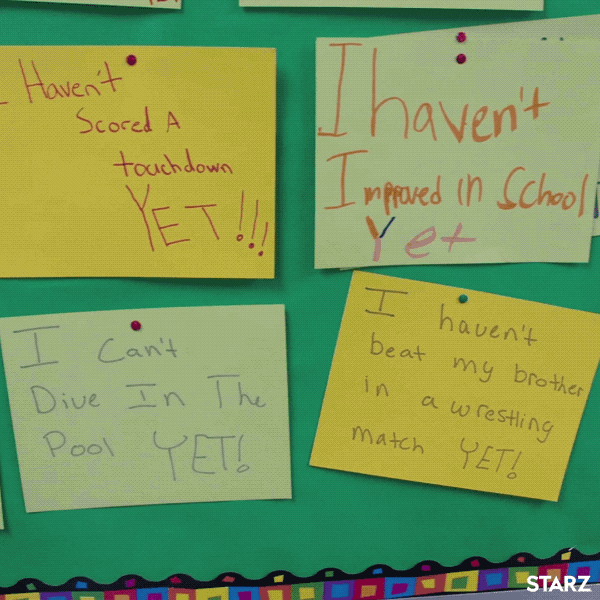 I Haven't
Scored A
touchdown
YET!!!
I haven't
Improved in School
Yet
I Can't
Dive In The
Pool YET!
I haven't
beat my brother
in a wrestling
match YET!
STARZ